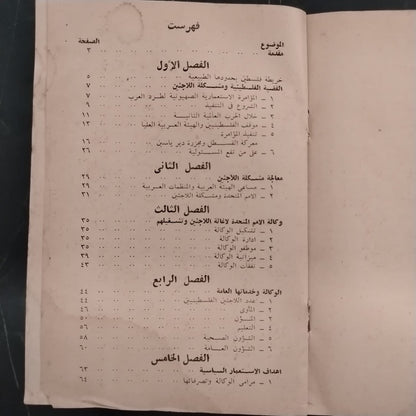 فهرست
الموضوع الصفحة
مقدمة ٣
الفصل الاول
خريطة فلسطين بحدودها الطبيعية ٥
القضية الفلسطينية ومشكلة اللاجئين ٧
١ - المؤامرة الاستعمارية الصهيونية لطرد العرب ٧
٢ - الشروع في التنفيذ ٩
٣ - خلال الحرب العالمية الثانية ١١
٤ - موقف الفلسطينيين والهيئة العربية العليا ١٢
٥ - تنفيذ المؤامرة ١٣
معركة القسطل ومجزرة دير ياسين ١٦
٦ - على من تقع المسئولية ٢٦
الفصل الثانى
معالجة مشكلة اللاجئين ٢٩
١ - مساعى الهيئة العربية والمنظمات العربية ٢٩
٢ - الامم المتحدة ومشكلة اللاجئين ٣١
الفصل الثالث
وكالة الامم المتحدة لاغاثة اللاجئين وتشغيلهم ٣٥
١ - تشكيل الوكالة ٣٥
٢ - ادارة الوكالة ٣٥
٣ - موظفو الوكالة ٣٥
٤ - ميزانية الوكالة ٣٩
٥ - نفقات الوكالة ٤٣
الفصل الرابع
الوكالة وخدماتها العامة ٤٤
١ - عدد اللاجئين الفلسطينيين ٤٤
٢ - المأوى
٣ - التموين ٥٠
٤ - التعليم
٥ - الشؤون الصحية ٥٨
٦ - الشؤون العامة ٦٠
الفصل الخامس
اهداف الاستعمار السياسية ٦٣
١ - مرامى الوكالة وتصرفاتها ٦٤